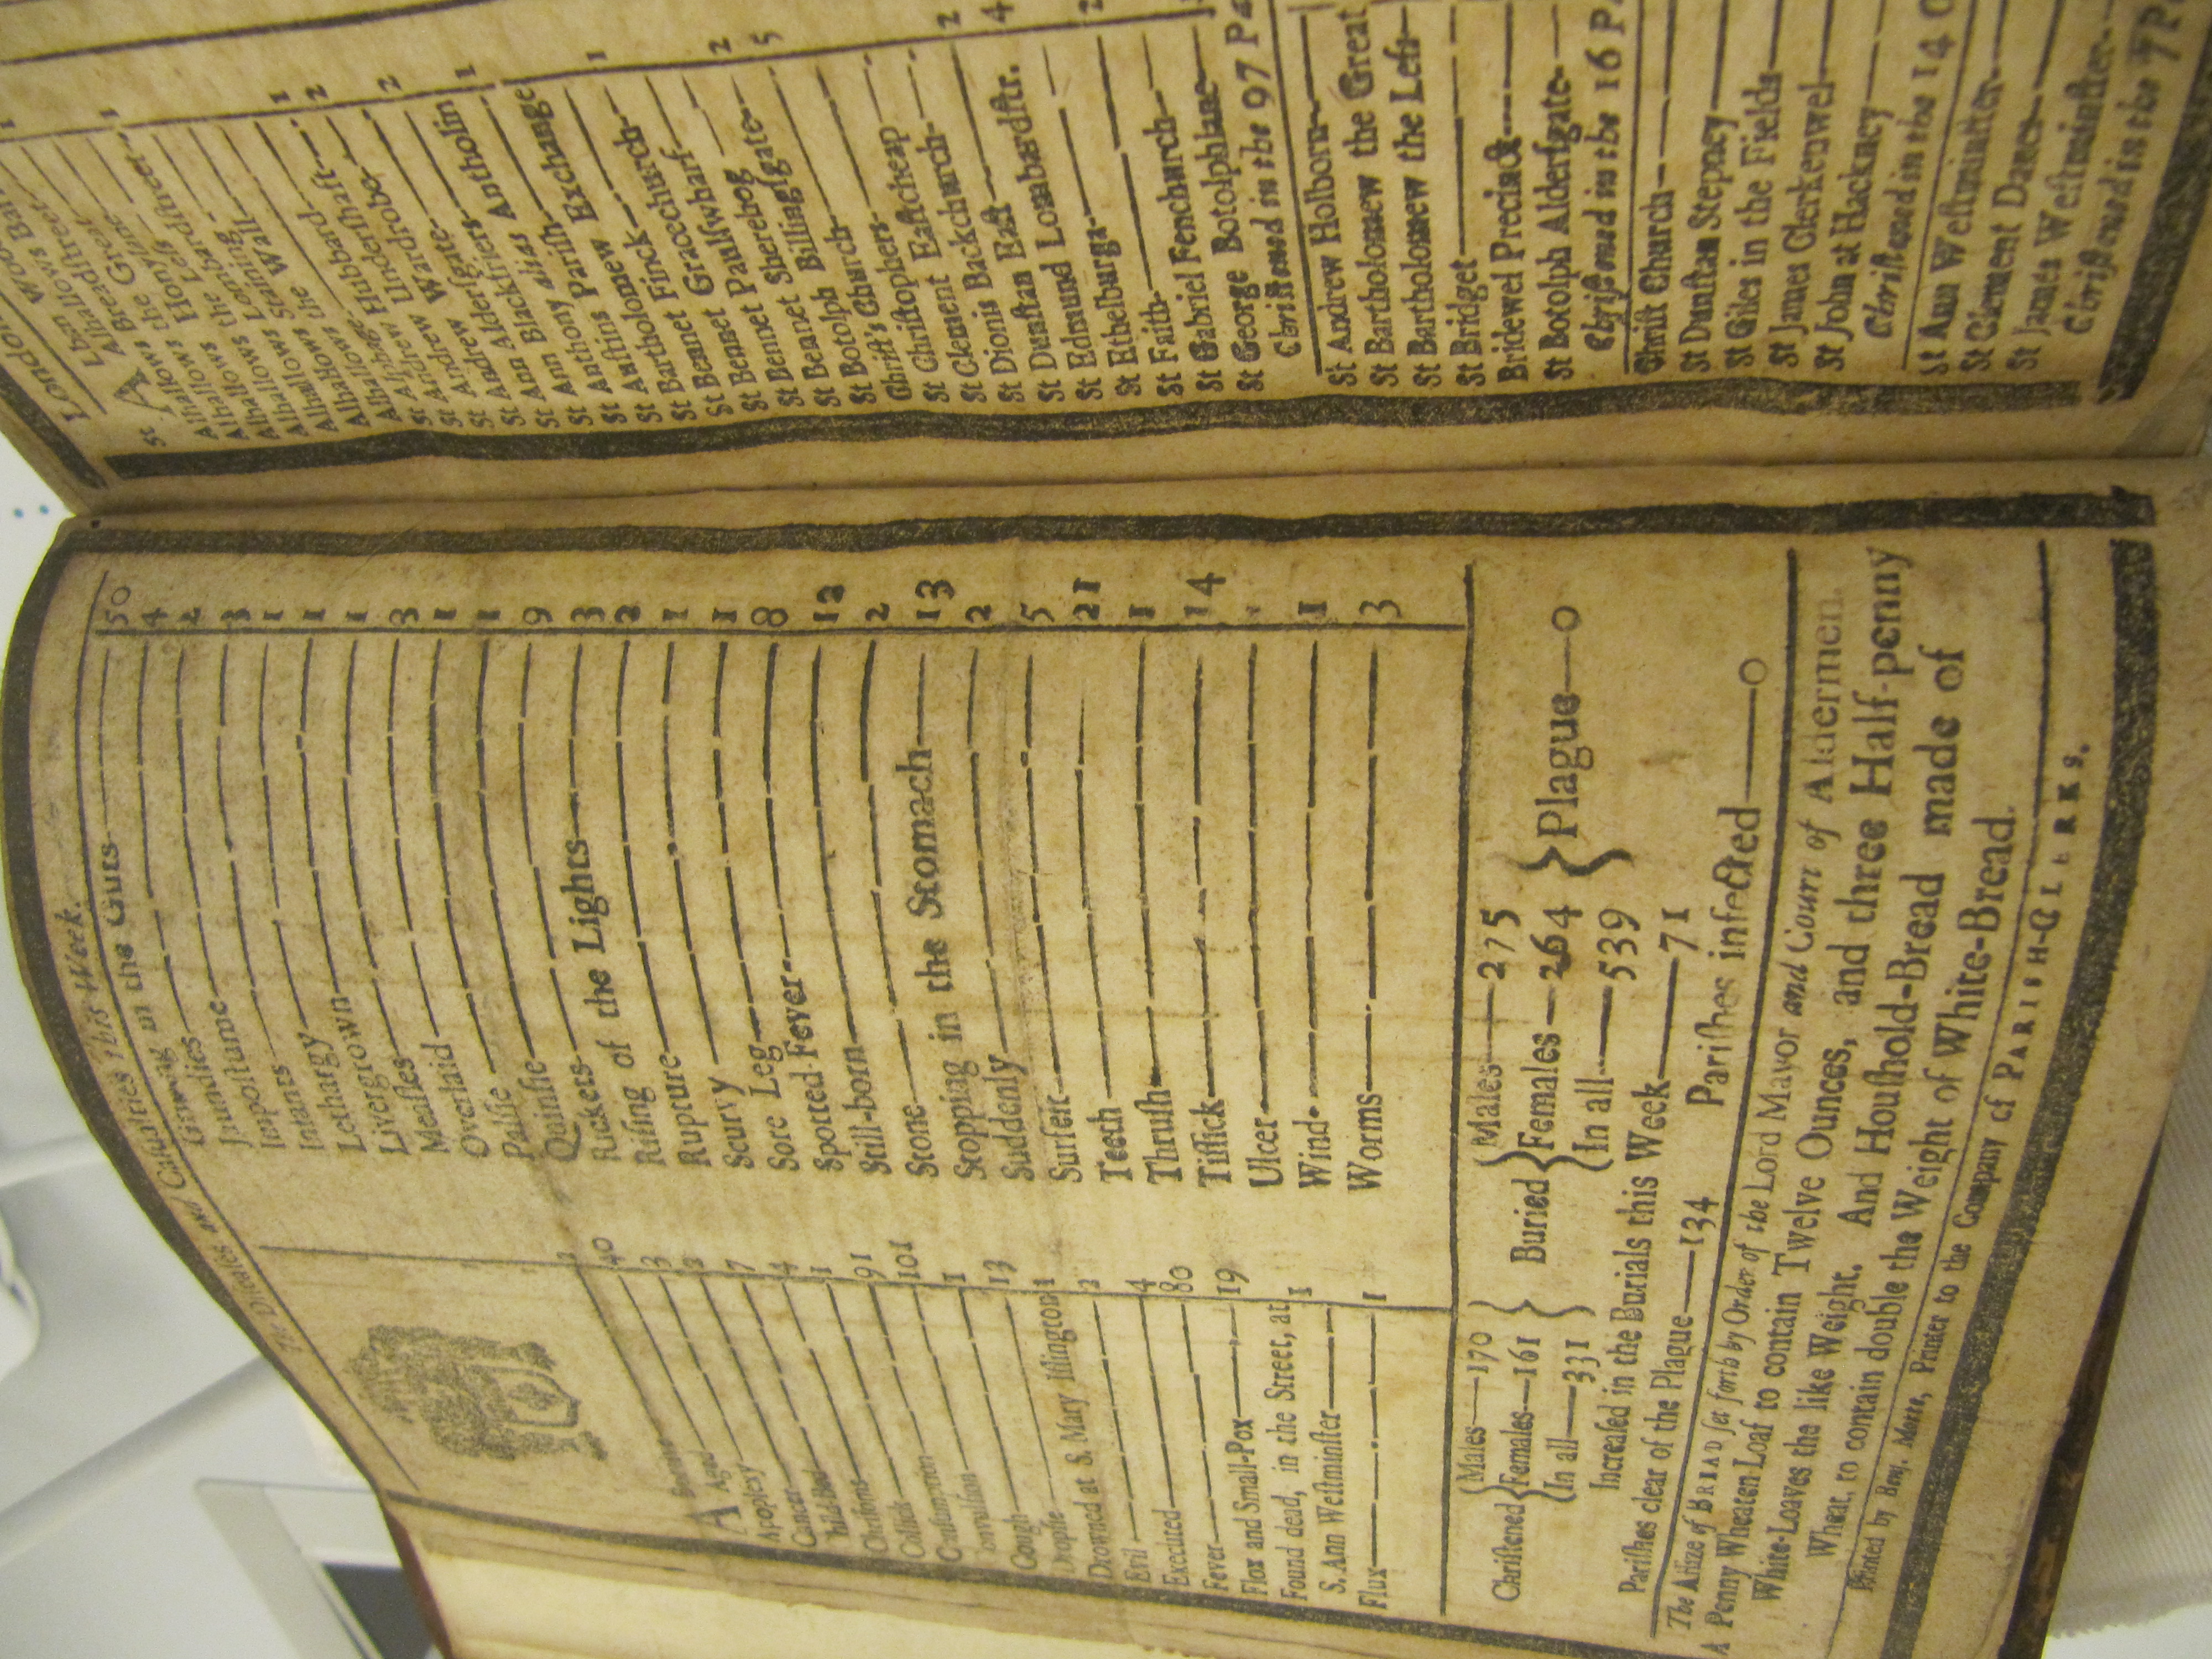 The Diseases and Casualties this Week.
Abortive
Aged 40
Apoplexy 3
Cancer
Child-bed 7
Chrisoms 4
Colick 1
Consumption 91
Convulsion 101
Cough 1
Dropsie 13
Drowned at S. Mary Islington 1
Evil 2
Executed 4
Fever 80
Flox and Small-Pox 19
Found dead, in the Street, at
S. Ann Westminster 1
Flux 1
in the Guts 50
Jaundies 4
Impostume 2
Infants 3
Lethargy 1
Livergrown 1
Measles 1
Overlaid 3
Palsie 1
Quinsie 1
Rickets 9
Rising of the Lights 3
Rupture 2
Scurvy 1
Sore Leg 1
Spotted Fever 8
Still-born 12
Stone 2
Stopping in the Stomach 13
Suddenly 2
Surfeit 5
Teeth 21
Thrush 1
Tissick 14
Ulcer
Wind 1
Worms 3
Christened { Males—170 Females—161 In all—331 } Buried { Males—275 Females—264 In all—539 } Plague—0
Increased in the Burials this Week—71
Parishes clear of the Plague—134 Parishes infected—0
The Assize of BREAD set forth by Order of the Lord Mayor and Court of Aldermen.
A Penny Wheaten-Loaf to contain Twelve Ounces, and three Half-penny
White-Loaves the like Weight. And Houshold-Bread made of
Wheat, to contain double the Weight of White-Bread.
Printed by Benj. Motte, Printer to the Company of PARISH-CLERKS.
London
St Alhallows Breadstreet 1
Alhallows the Great
Alhallows Honylane
Alhallows Lombardstreet
Alhallows Staining 1
Alhallows the Wall 2
Alphage
Andrew Hubbard 2
Andrew Undershaft
St Andrew Wardrobe 1
St Ann Aldersgate
St Ann Blackfriers
St Antholin
St Anthony alias
St Austins Parish
St Bartholomew Exchange
St Bennet Finck
St Bennet Gracechurch
St Bennet Paulswharf
St Bennet Sherehog
St Botolph Billingsgate
Christ's Church
St Christophers
St Clement Eastcheap
St Dionis Backchurch
St Dunstan East
St Edmund Lombardstr.
St Ethelburga
St Faith
St Gabriel Fenchurch
St George Botolphlane
Christened in the 97 Pa
St Andrew Holborn
St Bartholomew the Great
St Bartholomew the Less
St Bridget
Bridewel Precinct
St Botolph Aldersgate
Christned in the 16 Pa
Christ Church
St Dunstan Stepney
St Giles in the Fields
St James Clerkenwel
St John at Hackney
Christned in the 14 O
St Ann Westminster
St Clement Danes
St James Westminster
Christned in the 7 Pa